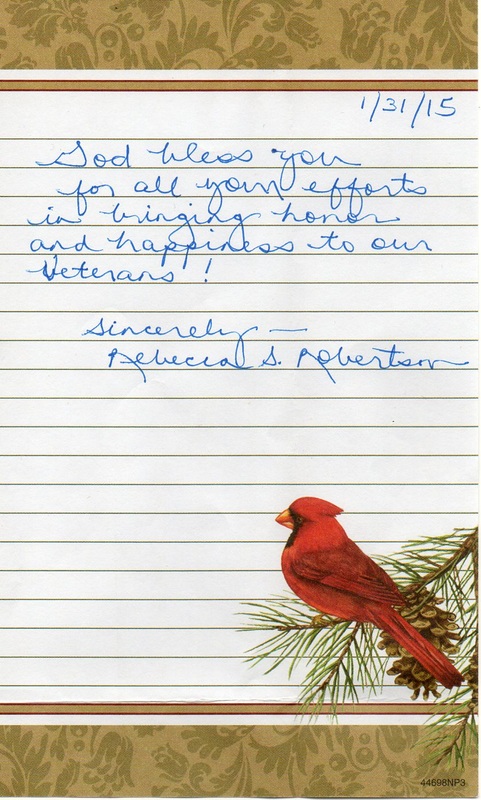 1/31/15
God bless you
for all your efforts
in bringing honor
and happiness to our
Veterans!
Sincerely —
Rebecca S. Robertson
44698NP3